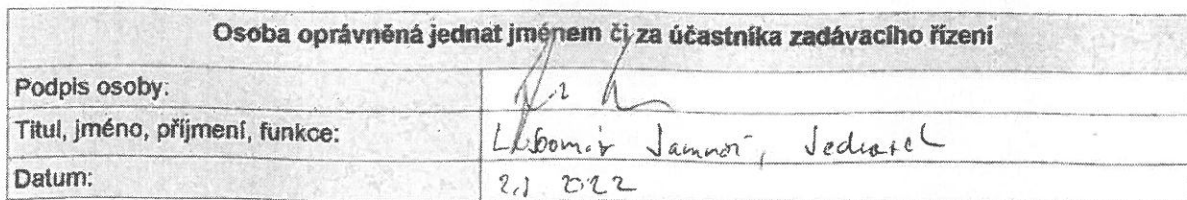 Osoba oprávněná jednat jménem či za účastníka zadávacího řízení
Podpis osoby:
Titul, jméno, příjmení, funkce: Lubomír Jednatel
Datum: 2022